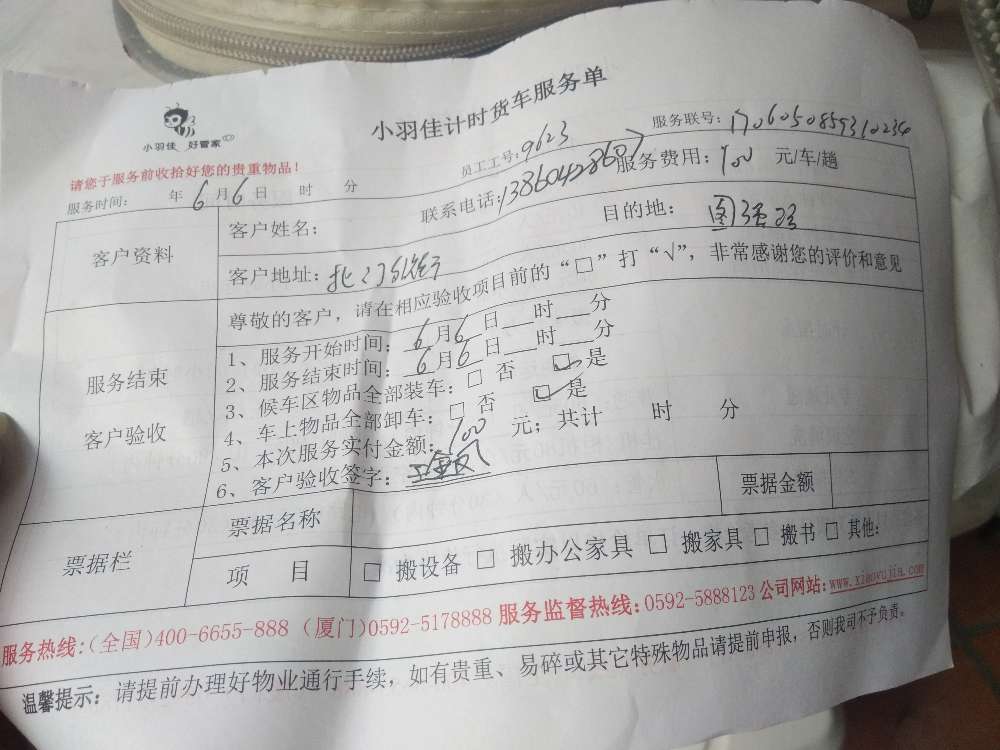 小羽佳 好管家
小羽佳计时货车服务单
请您于服务前收拾好您的贵重物品！
员工工号：9623
服务联号：1706050859310234
服务时间： 年6月6日 时 分
联系电话：13860428607
服务费用：100 元/车/趟
客户资料
客户姓名：
目的地：
客户地址：北门
尊敬的客户，请在相应验收项目前的“□”打“√”，非常感谢您的评价和意见
服务结束
客户验收
1、服务开始时间：6月6日___时___分
2、服务结束时间：6月6日___时___分
3、候车区物品全部装车：□ 否 ☑ 是
4、车上物品全部卸车：□ 否 ☑ 是
5、本次服务实付金额：100 元；共计 时 分
6、客户验收签字：
票据栏
票据名称
票据金额
项 目
□ 搬设备 □ 搬办公家具 □ 搬家具 □ 搬书 □ 其他：
服务热线：（全国）400-6655-888 （厦门）0592-5178888 服务监督热线：0592-5888123 公司网站：www.xiaoyujia.com
温馨提示：请提前办理好物业通行手续，如有贵重、易碎或其它特殊物品请提前申报，否则我司不予负责。